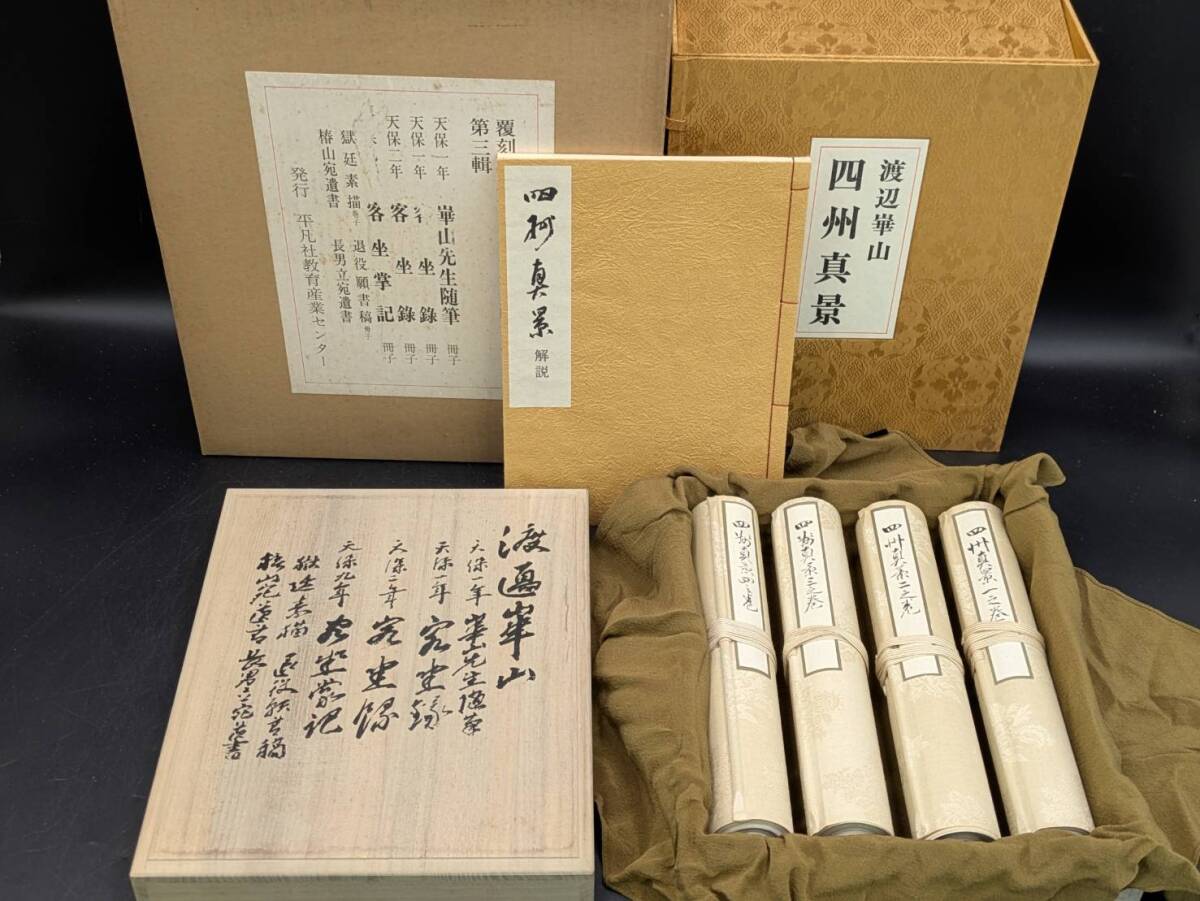 覆刻
第三輯
天保一年 崋山先生随筆 冊子
天保一年 客坐錄 冊子
天保二年 客坐錄 冊子
客坐掌記 冊子
獄廷素描 冊子 退役願書稿 冊子
椿山宛遺書 長男立宛遺書
発行 平凡社教育産業センター
四州真景 解説
渡辺崋山
四州真景
渡邉崋山
天保一年 崋山先生随筆
天保一年 客坐録
天保二年 客坐録
天保九年 客坐掌記
獄廷素描 退役願書稿
椿山宛遺書 長男立宛遺書
四州真景四之巻
四州真景三之巻
四州真景二之巻
四州真景一之巻